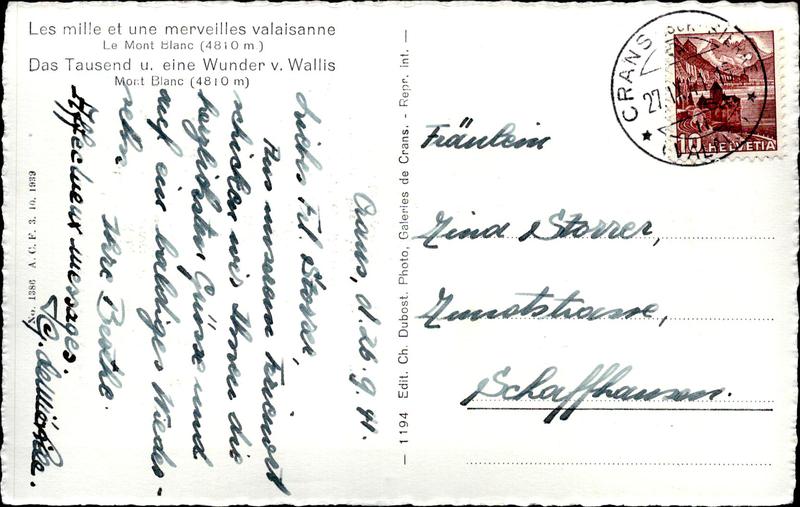 Les mille et une merveilles valaisanne
Le Mont Blanc (4810 m)
Das Tausend u. eine Wunder v. Wallis
Mont Blanc (4810 m)
Crans, d. 26. 9. 41.
Liebes Frl. Storrer,
Aus unserem Ferienort
schicken wir Ihnen die
herzlichsten Grüsse und
auf ein baldiges Wieder-
sehn.
Ihre Bertha.
Affectueux messages.
No. 1386 A. C. F. 3. 10. 1939
— 1194 Edit. Ch. Dubost, Photo, Galeries de Crans. - Repr. int. —
CRANS
27.
(VALAIS)
10 HELVETIA
Fräulein
Storrer,
Schaffhausen.